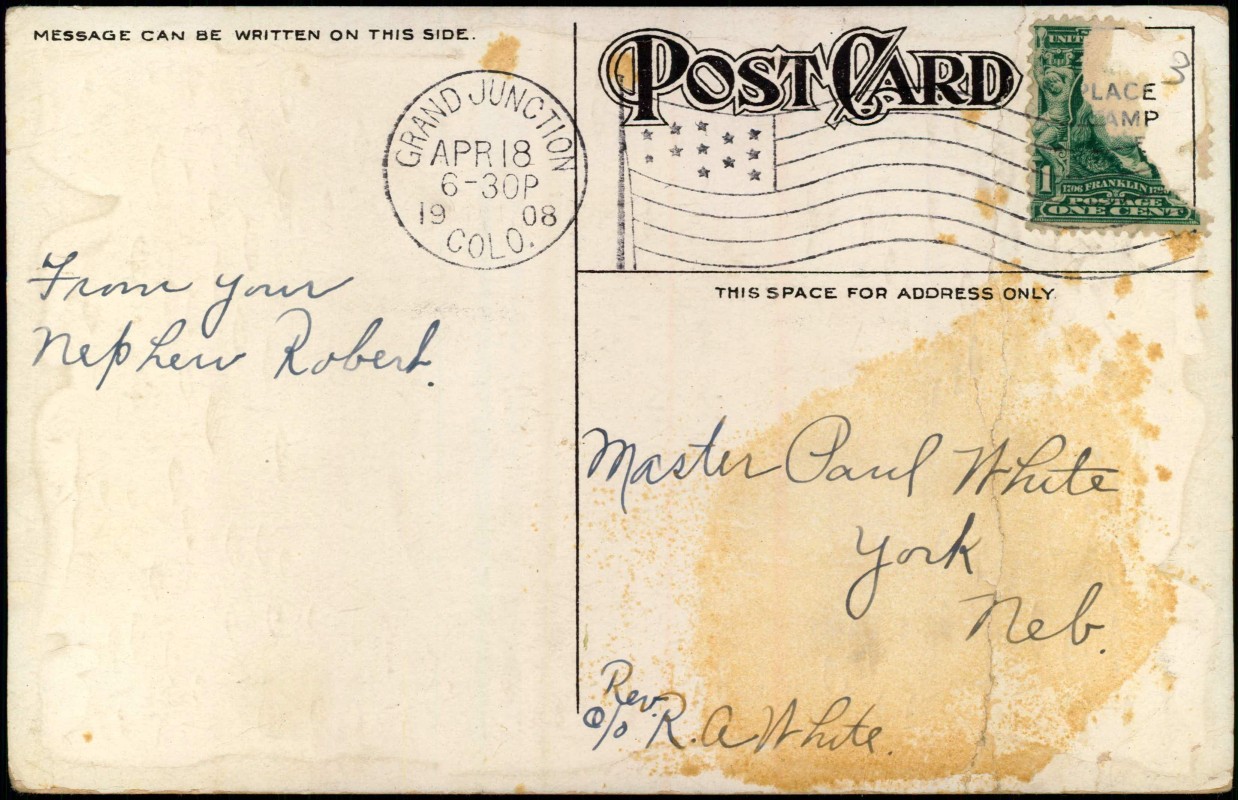 MESSAGE CAN BE WRITTEN ON THIS SIDE.
POST CARD
GRAND JUNCTION
APR 18
6-30P
19 08
COLO.
3
UNIT
PLACE
AMP
1
1706 FRANKLIN 1790
POSTAGE
ONE CENT
THIS SPACE FOR ADDRESS ONLY.
From your
Nephew Robert.
Master Paul White
York
Neb.
Rev.
c/o R. A White.